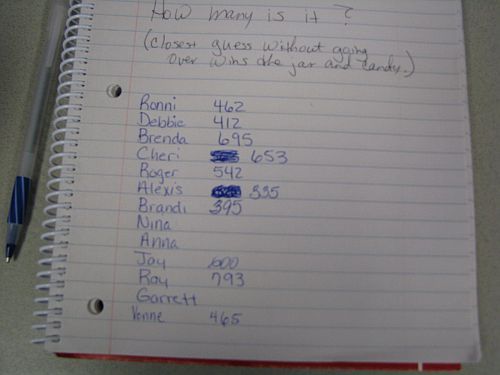 How many is it?
(closest guess without going
over wins the jar and candy.)
Ronni 462
Debbie 412
Brenda 695
Cheri 653
Roger 542
Alexis 335
Brandi 395
Nina
Anna
Jay 600
Ray 793
Garrett
Vonne 465